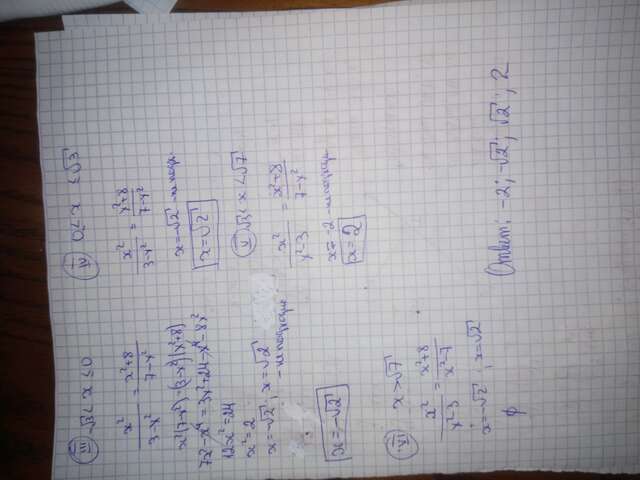 III -√3 < x ≤ 0
x²/(3-x²) = (x²+8)/(7-x²)
x²(7-x²) = (3-x²)(x²+8)
7x²-x⁴ = 3x²+24-x⁴-8x²
12x²=24
x²=2
x=-√2; x=√2
- не подходит
x=-√2
IV 0 < x ≤ √3
x²/(3-x²) = (x²+8)/(7-x²)
x=-√2 - не подх.
x=√2
V √3 < x < √7
x²/(x²-3) = (x²+8)/(7-x²)
x=-2 - не подходит
x=2
VI x > √7
x²/(x²-3) = (x²+8)/(x²-7)
x=-√2; x=√2
∅
Ответ: -2; -√2; √2; 2